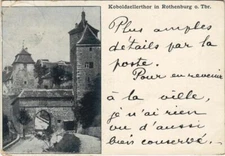 Koboldzellerthor in Rothenburg o. Tbr.
Plus amples
détails par la
poste.
Pour en revenir
à la ville,
je n'ai rien
vu d'aussi
bien conservé.